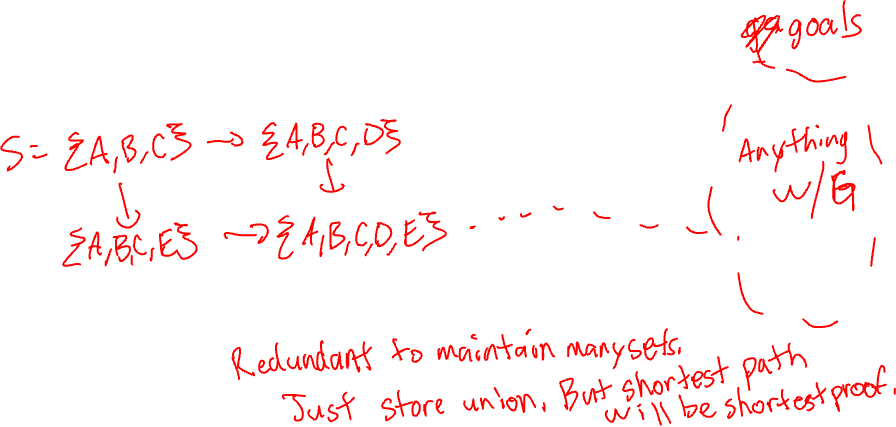 goals
S = {A,B,C} → {A,B,C,D}
Anything
w/G
{A,B,C,E} → {A,B,C,D,E}
Redundant to maintain many sets.
Just store union. But shortest path
will be shortest proof.